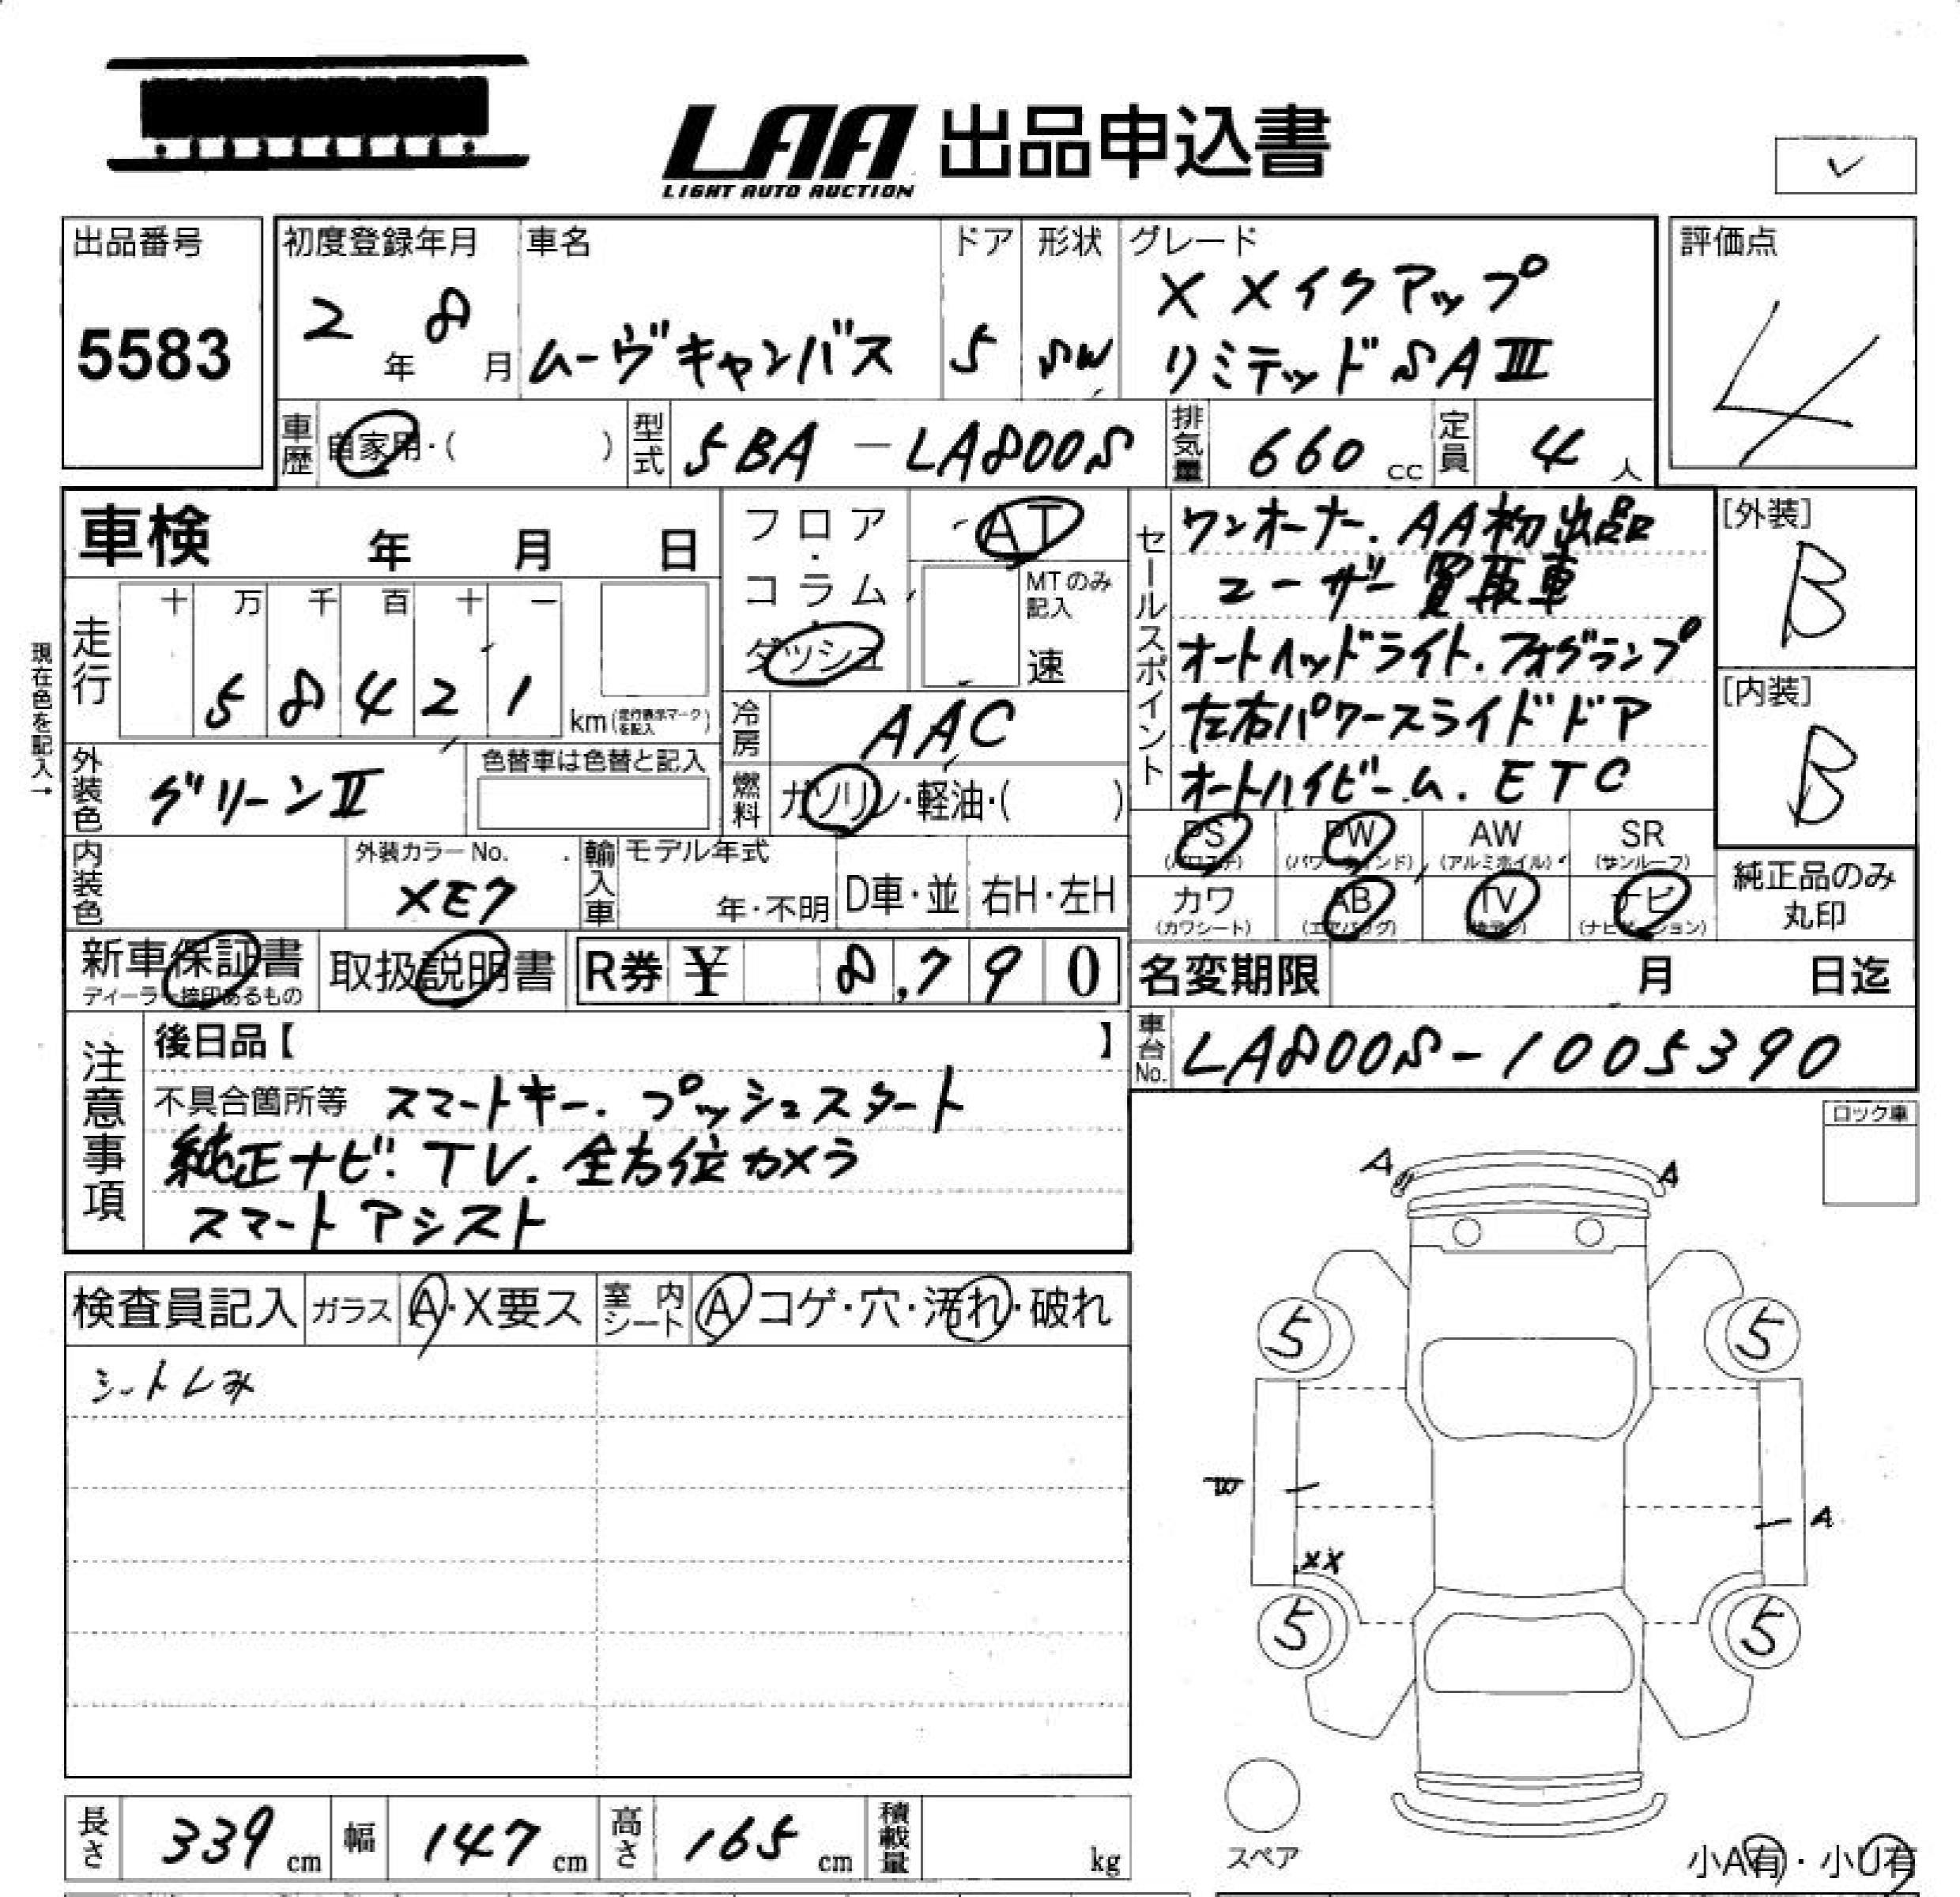 LAA 出品申込書
LIGHT AUTO AUCTION
✓
出品番号
5583
初度登録年月
2年 8月
車名
ムーヴキャンバス
ドア
5
形状
SW
グレード
X メイクアップ
リミテッド SAⅢ
評価点
4
車歴 自家用・( )
型式 5BA-LA800S
排気量 660 cc
定員 4 人
車検 年 月 日
フロア・コラム・ダッシュ
AT
MTのみ記入
速
走行
十 万 千 百 十 一
5 8 4 2 1
km(走行表示マークを記入)
現在色を記入→
冷房 AAC
燃料 ガソリン・軽油・( )
外装色 グリーンⅡ
色替車は色替と記入
内装色
外装カラーNo.
XE7
輸入車
モデル年式
年・不明
D車・並
右H・左H
セールスポイント
ワンオーナー. AA初出品
ユーザー買取車
オートヘッドライト.フォグランプ
左右パワースライドドア
オートハイビーム. ETC
[外装]
B
[内装]
B
PS (パワステ)
PW (パワーウィンド)
AW (アルミホイル)
SR (サンルーフ)
カワ (カワシート)
AB (エアバッグ)
TV
ナビ (ナビゲーション)
純正品のみ丸印
新車保証書
ディーラー捺印あるもの
取扱説明書
R券 ¥ 8,790
名変期限 月 日迄
車台No. LA800S-1005390
注意事項
後日品【 】
不具合箇所等 スマートキー. プッシュスタート
純正ナビ. TV. 全方位カメラ
スマートアシスト
ロック車
検査員記入
ガラス A・X要ス
室内シート A コゲ・穴・汚れ・破れ
シートしみ
A A
5 5
A
XX
5 5
スペア
小A有・小U有
長さ 339 cm
幅 147 cm
高さ 165 cm
積載量 kg